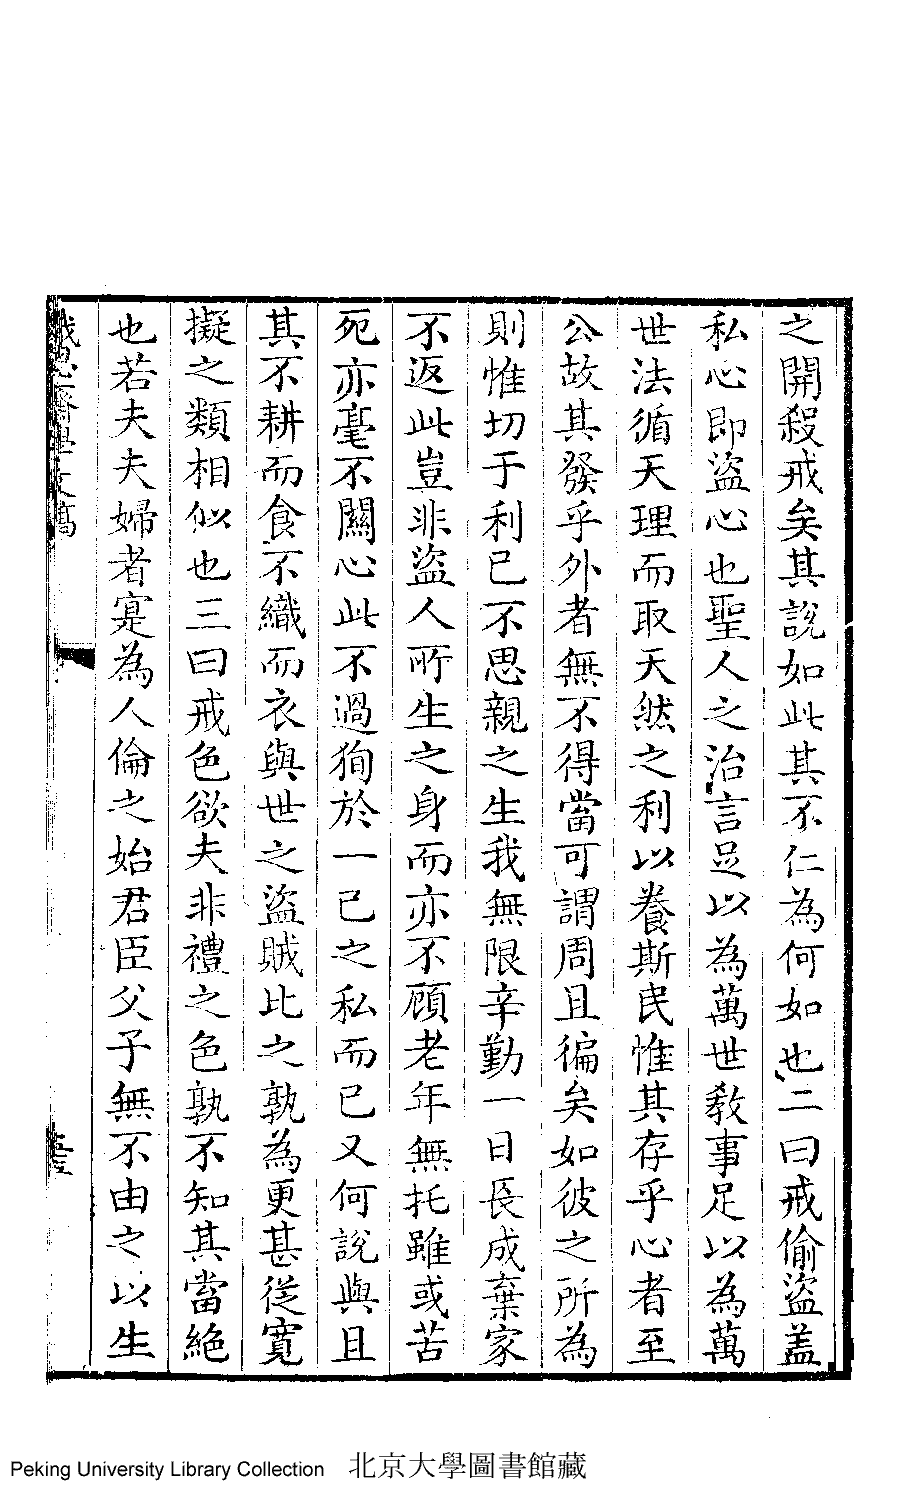 之開殺戒矣其說如此其不仁為何如也二曰戒偷盜盖
私心即盜心也聖人之治言足以為萬世教事足以為萬
世法循天理而取天然之利以養斯民惟其存乎心者至
公故其發乎外者無不得當可謂周且徧矣如彼之所為
則惟切于利己不思親之生我無限辛勤一日長成棄家
不返此豈非盜人所生之身而亦不顧老年無托雖或苦
死亦毫不關心此不過狥於一己之私而已又何說與且
其不耕而食不織而衣與世之盜賊比之孰為更甚從寬
擬之類相似也三曰戒色欲夫非禮之色孰不知其當絕
也若夫夫婦者寔為人倫之始君臣父子無不由之以生
思齋學文稿
Peking University Library Collection 北京大學圖書館藏